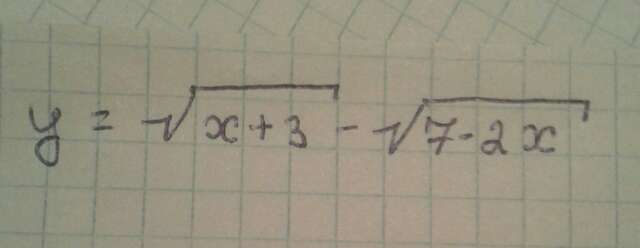 y = √(x+3) - √(7-2x)